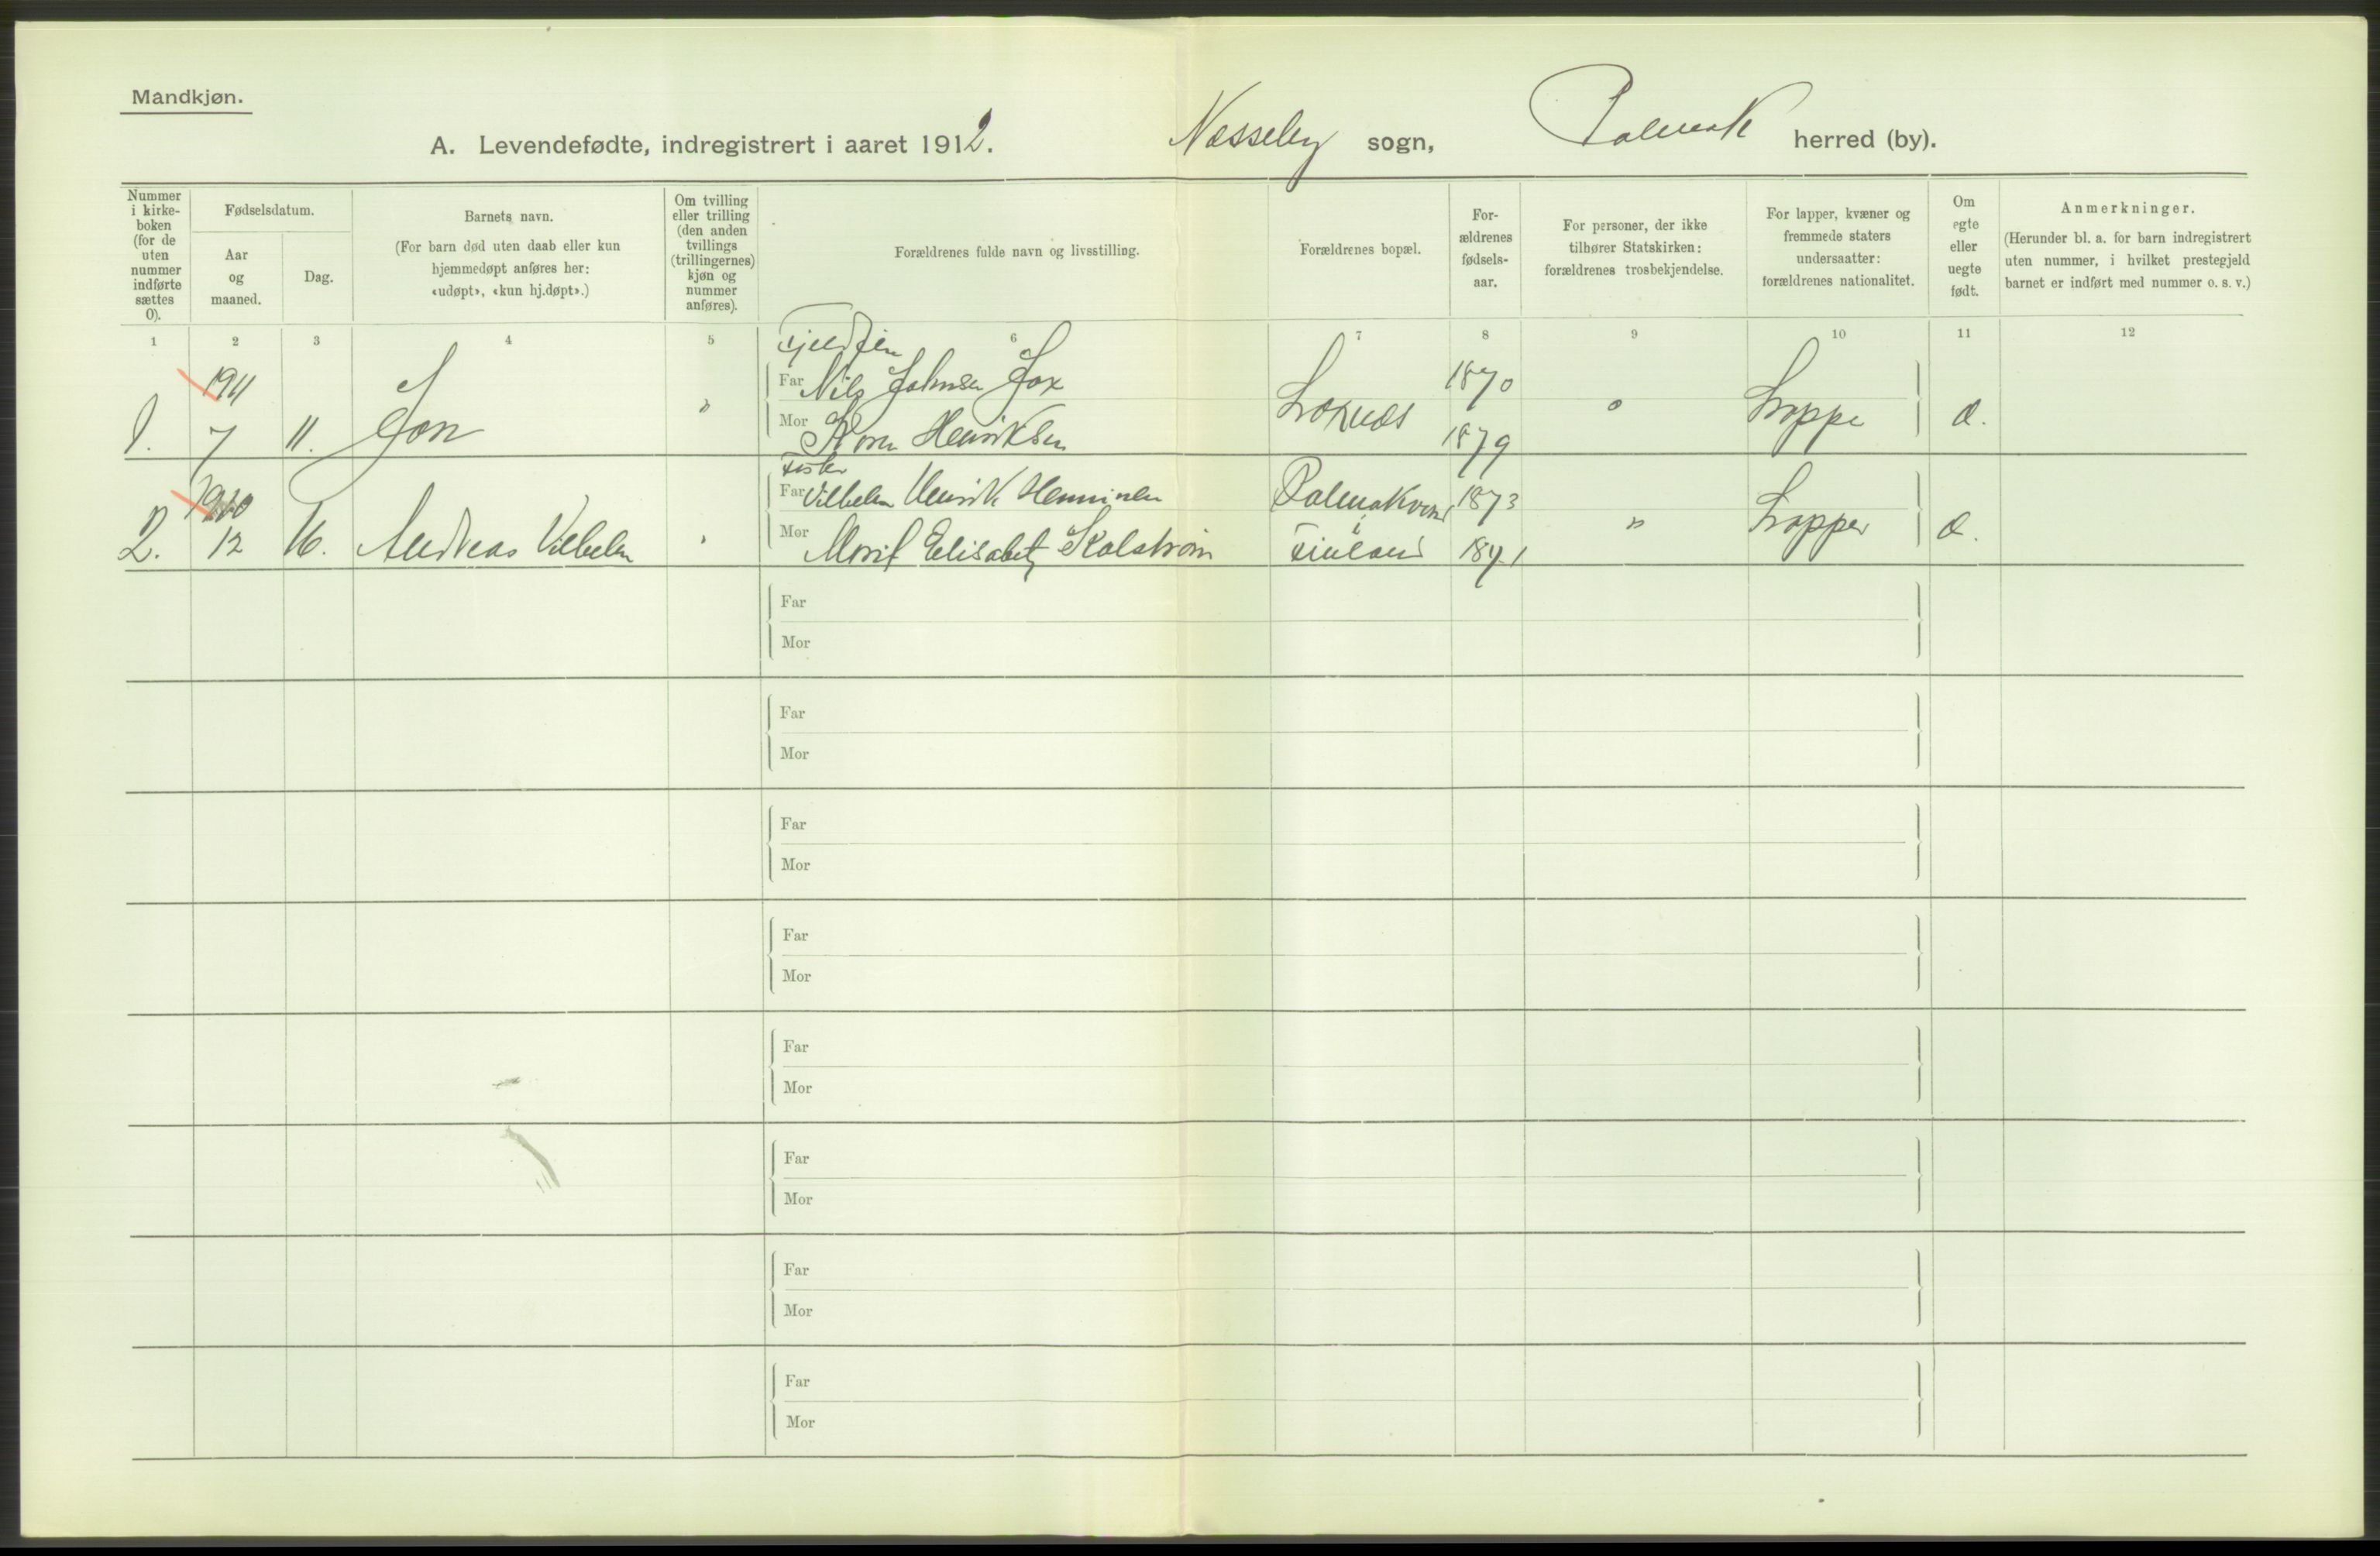 Mandkjøn.
A. Levendefødte, indregistrert i aaret 1912. Nesseby sogn, Polmak herred (by).
Nummer i kirke-boken (for de uten nummer indførte sættes 0).
Fødselsdatum.
Aar og maaned.
Dag.
Barnets navn.
(For barn død uten daab eller kun
hjemmedøpt anføres her:
«udøpt», «kun hj.døpt».)
Om tvilling
eller trilling
(den anden
tvillings
(trillingernes)
kjøn og
nummer
anføres).
Forældrenes fulde navn og livsstilling.
Forældrenes bopæl.
For-
ældrenes
fødsels-
aar.
For personer, der ikke
tilhører Statskirken:
forældrenes trosbekjendelse.
For lapper, kvæner og
fremmede staters
undersaatter:
forældrenes nationalitet.
Om
egte
eller
uegte
født.
Anmerkninger.
(Herunder bl. a. for barn indregistrert
uten nummer, i hvilket prestegjeld
barnet er indført med nummer o. s. v.)
1 2 3 4 5 6 7 8 9 10 11 12
Fjeldfin
1911 Far Nils Johnsen 1870
1. 7 11. Jon " Mor Henriksen 1879 Lappe
Fisker
Far Vilhelm Henrik Henninen Polmakvand 1873
2. 12 16. Andreas Vilhelm Mor Marit Elisabet Kalstrøm i Finland 1871 " Lapper
Far
Mor
Far
Mor
Far
Mor
Far
Mor
Far
Mor
Far
Mor
Far
Mor
Far
Mor